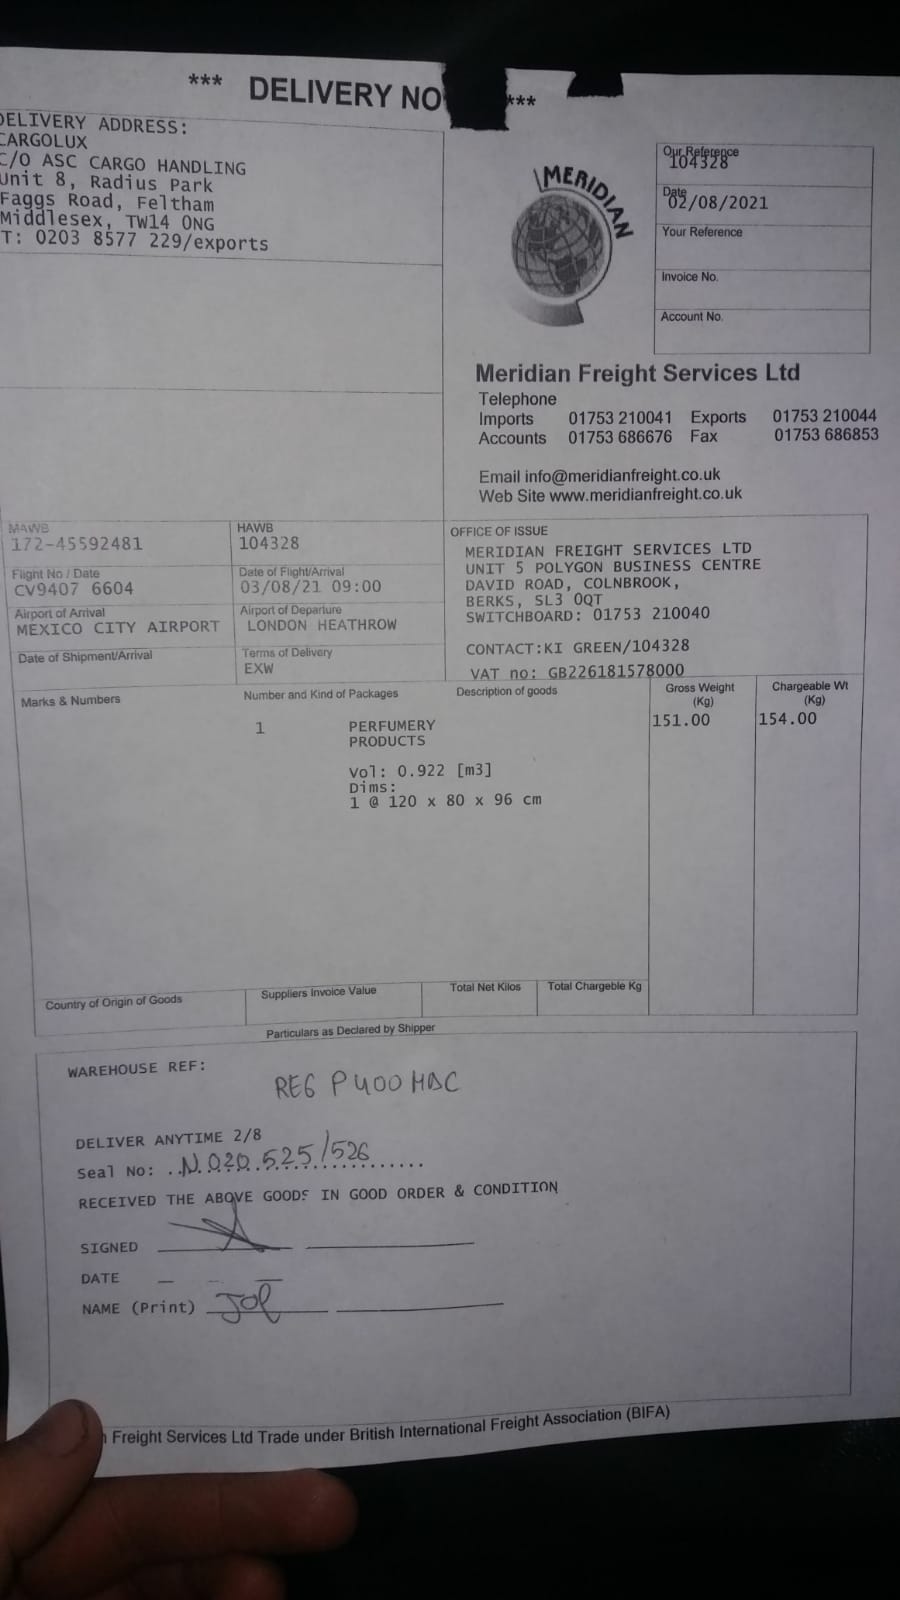 *** DELIVERY NO ***
DELIVERY ADDRESS:
CARGOLUX
C/O ASC CARGO HANDLING
Unit 8, Radius Park
Faggs Road, Feltham
Middlesex, TW14 0NG
T: 0203 8577 229/exports
MERIDIAN
Our Reference
104328
Date
02/08/2021
Your Reference
Invoice No.
Account No.
Meridian Freight Services Ltd
Telephone
Imports 01753 210041 Exports 01753 210044
Accounts 01753 686676 Fax 01753 686853
Email info@meridianfreight.co.uk
Web Site www.meridianfreight.co.uk
MAWB
172-45592481
HAWB
104328
Flight No / Date
CV9407 6604
Date of Flight/Arrival
03/08/21 09:00
Airport of Arrival
MEXICO CITY AIRPORT
Airport of Departure
LONDON HEATHROW
Date of Shipment/Arrival
Terms of Delivery
EXW
OFFICE OF ISSUE
MERIDIAN FREIGHT SERVICES LTD
UNIT 5 POLYGON BUSINESS CENTRE
DAVID ROAD, COLNBROOK,
BERKS, SL3 0QT
SWITCHBOARD: 01753 210040
CONTACT:KI GREEN/104328
VAT no: GB226181578000
Marks & Numbers
Number and Kind of Packages
Description of goods
Gross Weight
(Kg)
Chargeable Wt
(Kg)
1 PERFUMERY 151.00 154.00
PRODUCTS
Vol: 0.922 [m3]
Dims:
1 @ 120 x 80 x 96 cm
Country of Origin of Goods
Suppliers Invoice Value
Total Net Kilos
Total Chargeble Kg
Particulars as Declared by Shipper
WAREHOUSE REF:
REG P400 HDC
DELIVER ANYTIME 2/8
Seal No: N.020.525/526
RECEIVED THE ABOVE GOODS IN GOOD ORDER & CONDITION
SIGNED
DATE
NAME (Print)
Freight Services Ltd Trade under British International Freight Association (BIFA)